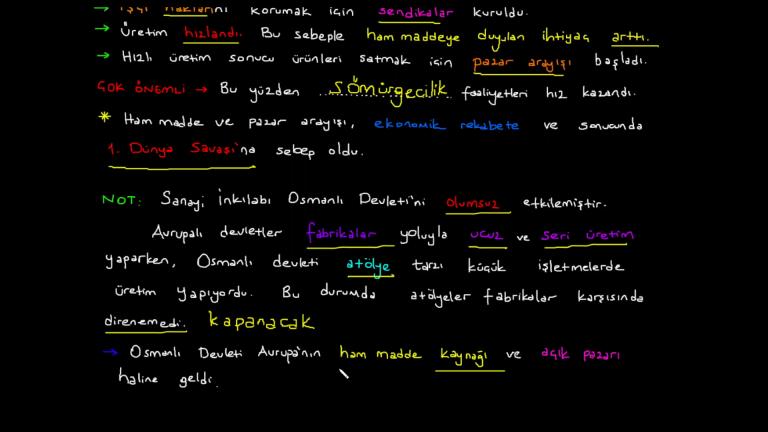 → İşçi haklarını korumak için sendikalar kuruldu.
→ Üretim hızlandı. Bu sebeple ham maddeye duyulan ihtiyaç arttı.
→ Hızlı üretim sonucu ürünleri satmak için pazar arayışı başladı.
ÇOK ÖNEMLİ → Bu yüzden SÖMÜRGECİLİK faaliyetleri hız kazandı.
* Ham madde ve pazar arayışı, ekonomik rekabete ve sonucunda
1. Dünya Savaşı'na sebep oldu.
NOT: Sanayi İnkılabı Osmanlı Devleti'ni olumsuz etkilemiştir.
Avrupalı devletler fabrikalar yoluyla ucuz ve seri üretim
yaparken, Osmanlı devleti atölye tarzı küçük işletmelerde
üretim yapıyordu. Bu durumda atölyeler fabrikalar karşısında
direnemedi. kapanacak
→ Osmanlı Devleti Avrupa'nın ham madde kaynağı ve açık pazarı
haline geldi.